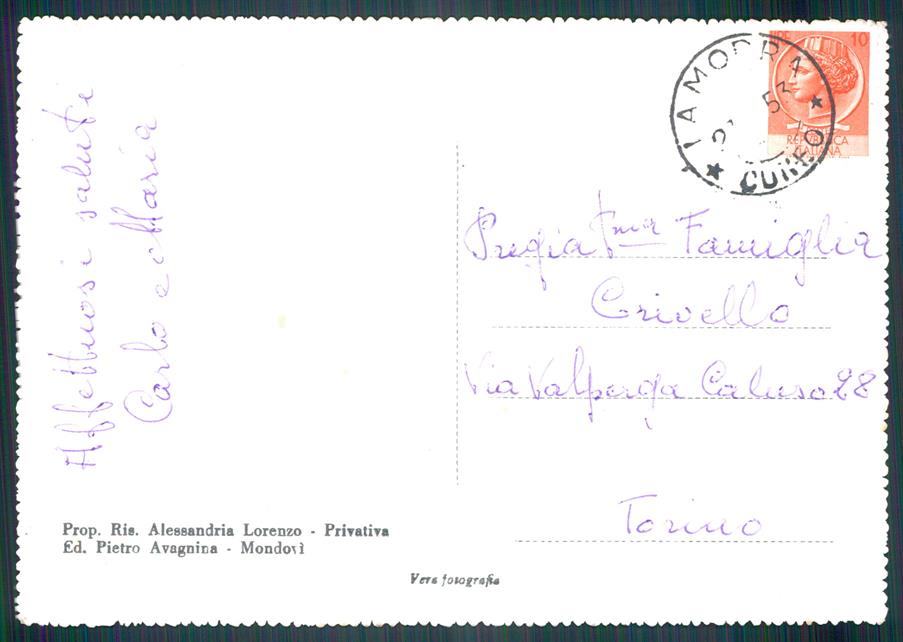 Affettuosi saluti
Carlo e Maria
Prop. Ris. Alessandria Lorenzo - Privativa
Ed. Pietro Avagnina - Mondovì
Vera fotografia
LA MORRA
53
CUNEO
10
REPUBBLICA
ITALIANA
Pregiatma Famiglia
Crivello
Via Valperga Caluso 28
Torino